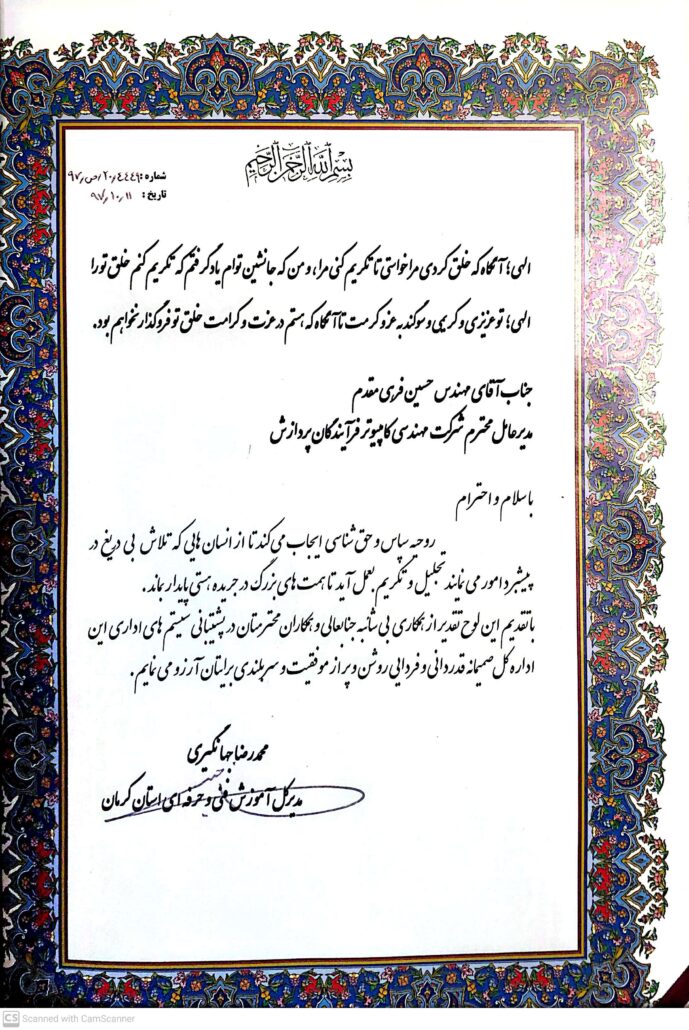 بسم الله الرحمن الرحیم
شماره: ۹۷/ص/۲۰/۴۴۴۹
تاریخ: ۹۷/۱۰/۱۱
الهی؛ آنگاه که خلق کردی مرا خواستی تا تکریم کنی مرا، و من که جانشین توام یاد گرفتم که تکریم کنم خلق تو را
الهی؛ تو عزیزی و کریمی و سوگند به عز و کرمت تا آنگاه که هستم در عزت و کرامت خلق تو فروگذار نخواهم بود.
جناب آقای مهندس حسین فرهی مقدم
مدیرعامل محترم شرکت مهندسی کامپیوتر فرآیندگان پردازش
با سلام و احترام
روحیه سپاس و حق شناسی ایجاب می کند تا از انسان هایی که تلاش بی دریغ در
پیشبرد امور می نمایند تجلیل و تکریم بعمل آید تا همت های بزرگ در جریده هستی پایدار بماند.
با تقدیم این لوح تقدیر از همکاری بی شائبه جنابعالی و همکاران محترمتان در پشتیبانی سیستم های اداری این
اداره کل صمیمانه قدردانی و فردایی روشن و پر از موفقیت و سربلندی برایتان آرزو می نمایم.
محمدرضا جهانگیری
مدیرکل آموزش فنی و حرفه ای استان کرمان
CS Scanned with CamScanner